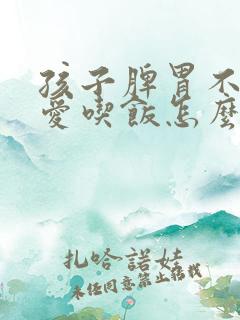 孩子脾胃不
愛喫飯怎麼
扎哈諾娃
未经同意禁止转载